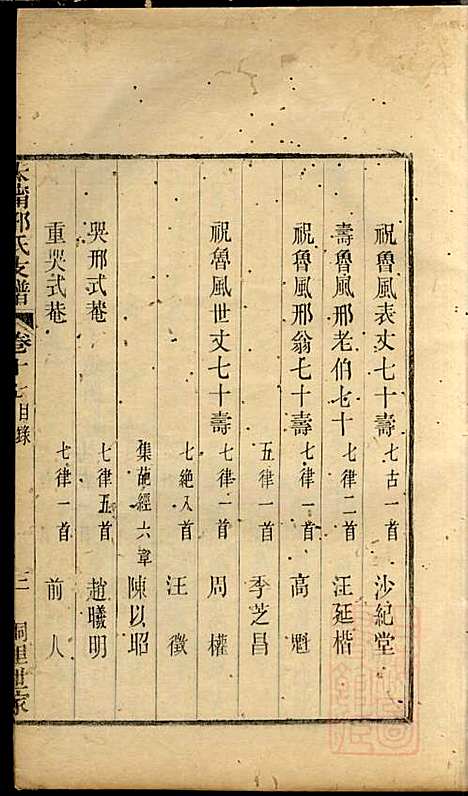 祝魯風表丈七十壽 七古一首 沙紀堂
壽魯風邢老伯七十 七律二首 汪延楷
祝魯風邢翁七十壽 七律一首 高魁
五律一首 李芝昌
祝魯風世丈七十壽 七律一首 周權
七絶入首 汪徵
集葩經六章 陳以昭
哭邢式菴 七律五首 趙曦明
重哭式菴 七律一首 前人
邢氏支譜 卷十七目錄 三 世家